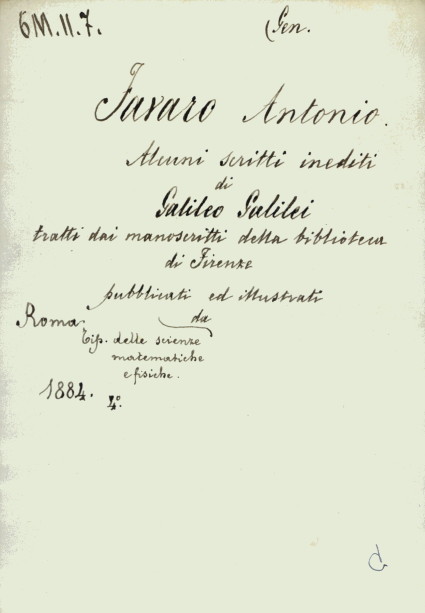 6M.II.7.
(Gen.
Favaro Antonio.
Alcuni scritti inediti
di
Galileo Galilei
tratti dai manoscritti della biblioteca
di Firenze
pubblicati ed illustrati
da
Roma.
Tip. delle scienze
matematiche
e fisiche.
1884. 4º.